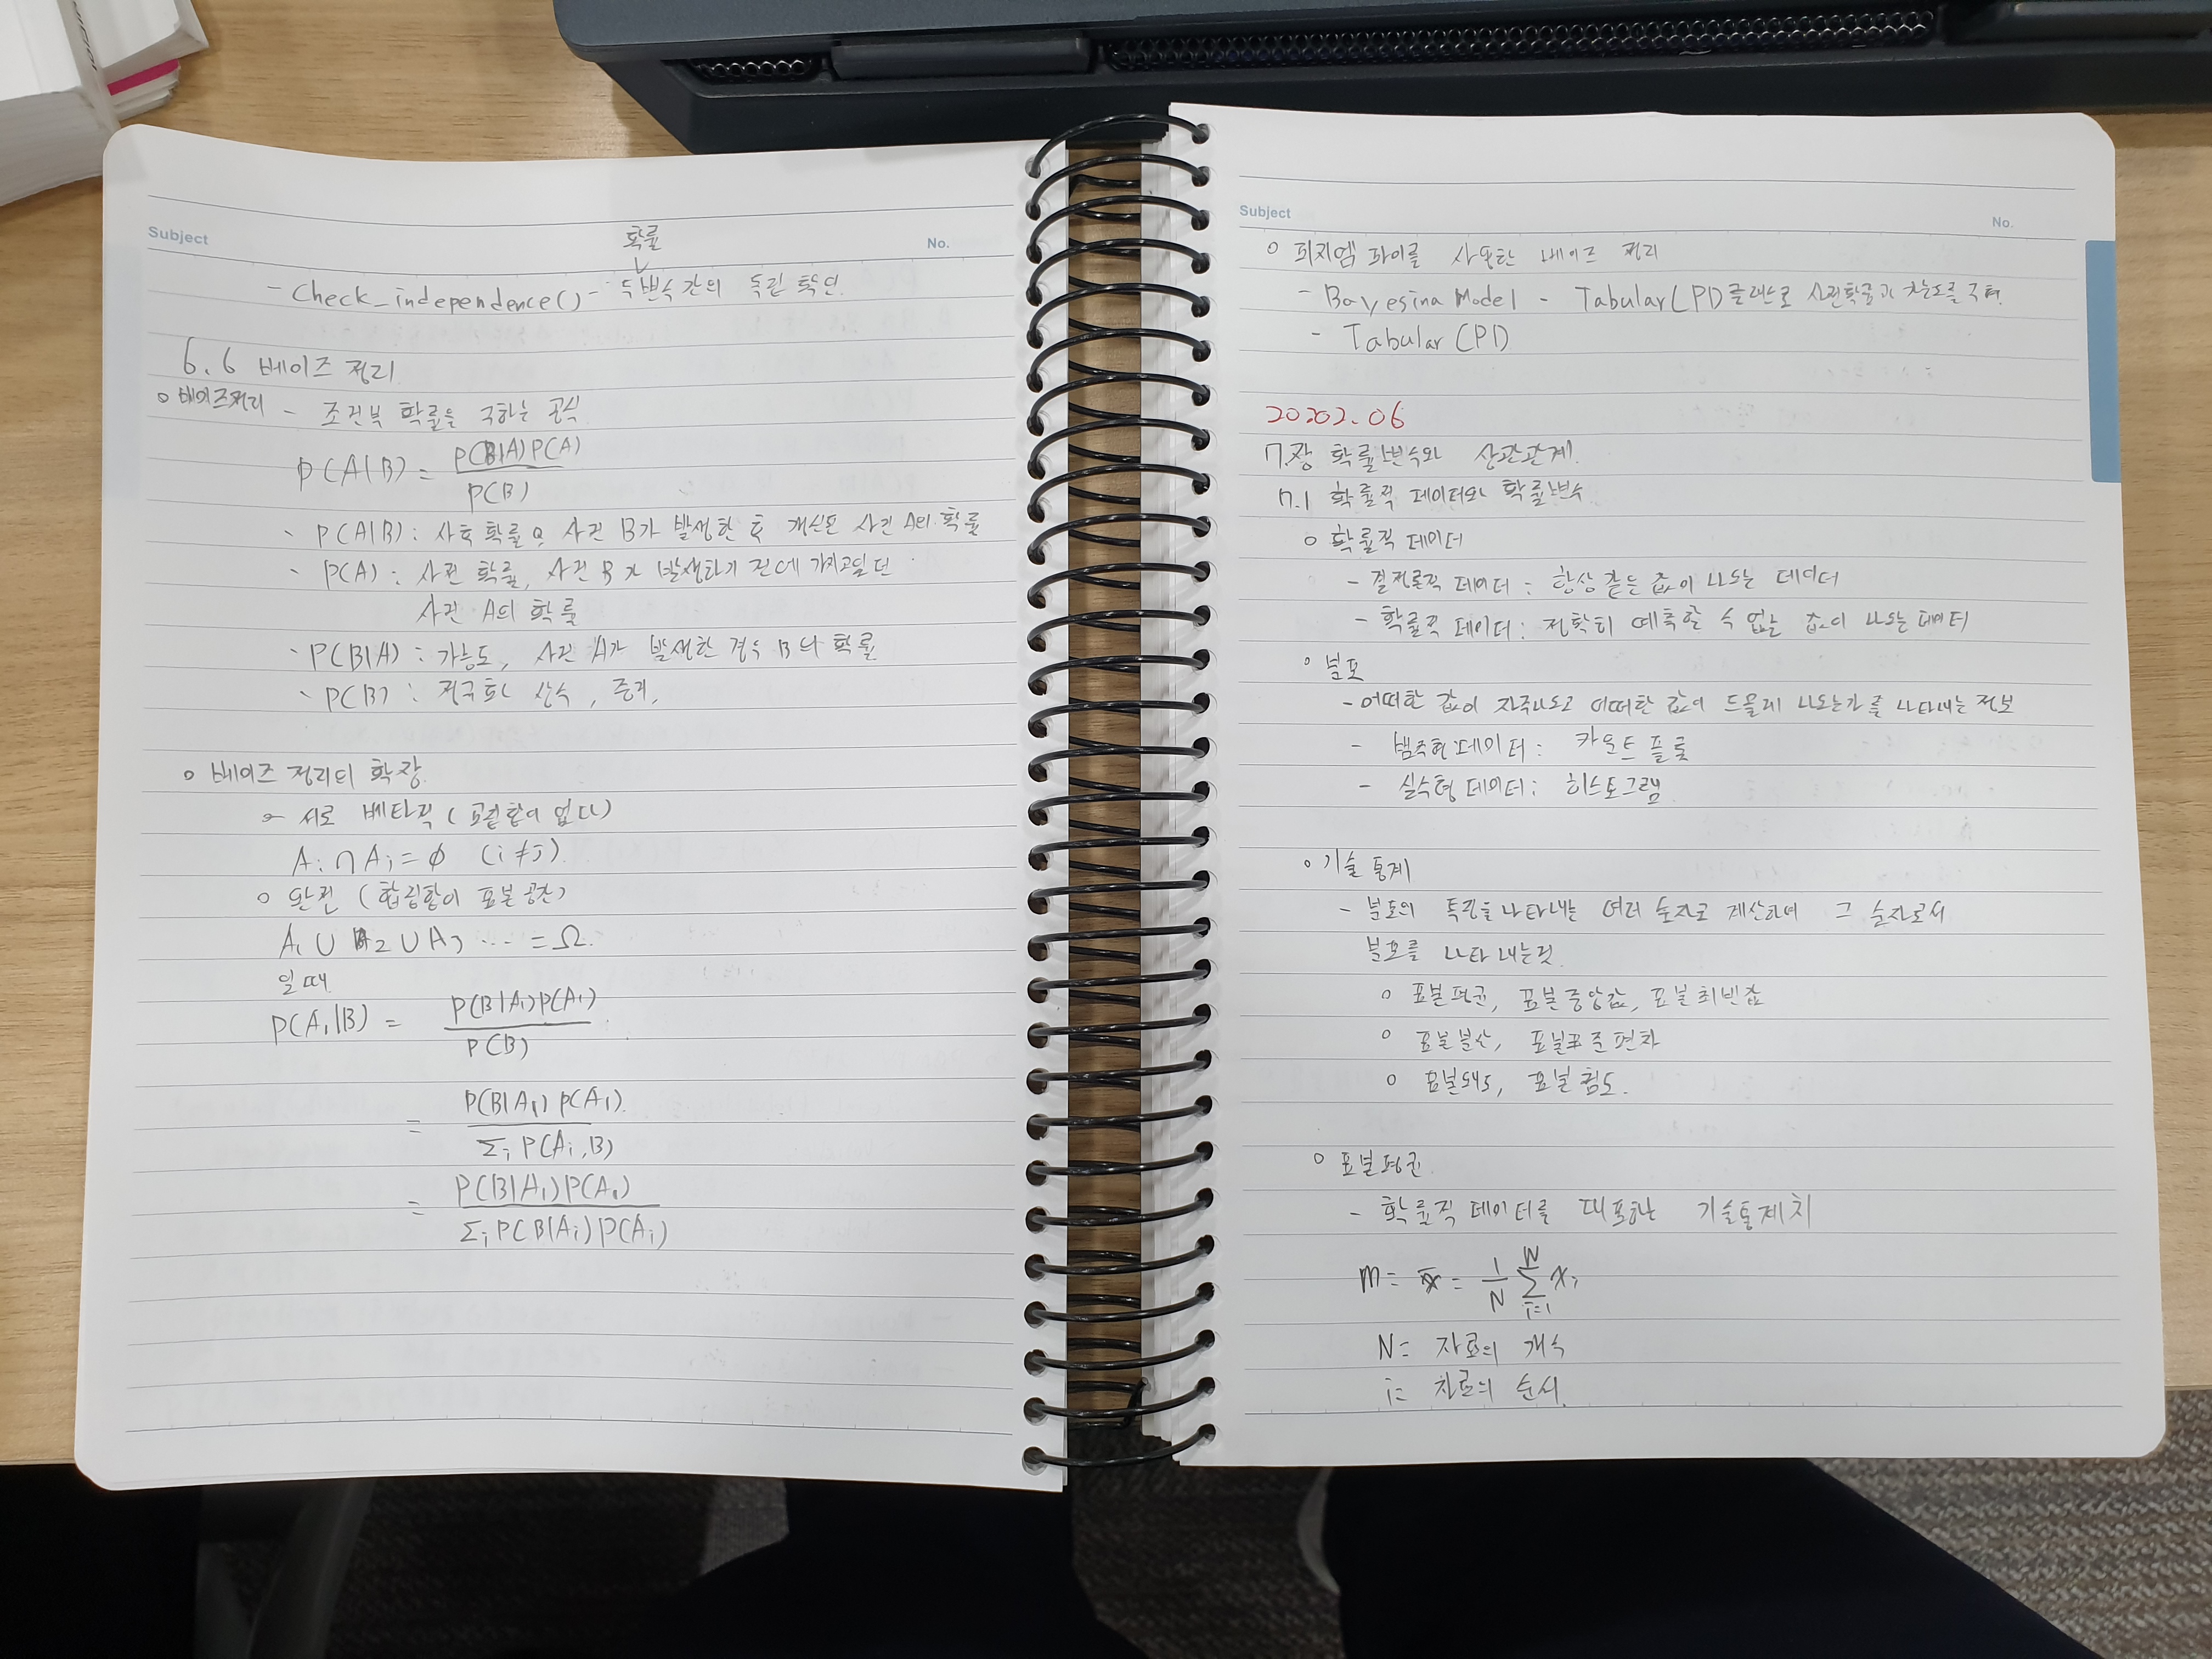 Subject
No.
확률
- Check_independence() - 두변수 간의 독립 확인.
6.6 베이즈 정리
○ 베이즈정리 - 조건부 확률을 구하는 공식.
P(A|B) = P(B|A)P(A) / P(B)
- P(A|B) : 사후 확률 사건 B가 발생한 후 갱신된 사건 A의 확률
- P(A) : 사전 확률, 사건 B가 발생하기 전에 가지고있던
사건 A의 확률
- P(B|A) : 가능도, 사건 A가 발생한 경우 B의 확률
- P(B) : 정규화 상수, 증거.
○ 베이즈 정리의 확장.
- 서로 베타적 (교집합이 없다)
Ai ∩ Aj = ∅ (i ≠ j)
○ 완전 (합집합이 표본 공간)
A₁ ∪ A₂ ∪ A₃ ... = Ω.
일때
P(A₁|B) = P(B|A₁)P(A₁) / P(B)
= P(B|A₁)P(A₁) / Σi P(Ai,B)
= P(B|A₁)P(A₁) / Σi P(B|Ai)P(Ai)
Subject
No.
○ 피지엠파이를 사용한 베이즈 정리
- Bayesina Model - Tabular(PD클래스로 사전확률과 가능도를 구현.
- Tabular CPD
20202.06
7.장 확률변수와 상관관계.
7.1 확률적 데이터와 확률변수
○ 확률적 데이터
- 결정론적 데이터 : 항상 같은 값이 나오는 데이터
- 확률적 데이터 : 정확히 예측할 수 없는 값이 나오는 데이터
○ 분포
- 어떠한 값이 자주나오고 어떠한 값이 드물게 나오는가를 나타내는 정보
- 범주형데이터 : 카운트 플롯
- 실수형 데이터 : 히스토그램
○ 기술 통계
- 분포의 특징을 나타내는 여러 숫자로 계산하여 그 숫자로서
분포를 나타내는것.
○ 표본평균, 표본중앙값, 표본최빈값
○ 표본분산, 표본표준편차
○ 표본왜도, 표본첨도.
○ 표본평균.
- 확률적 데이터를 대표하는 기술통계치
m = x̄ = 1/N Σ(i=1, N) xi
N = 자료의 개수
i = 자료의 순서.